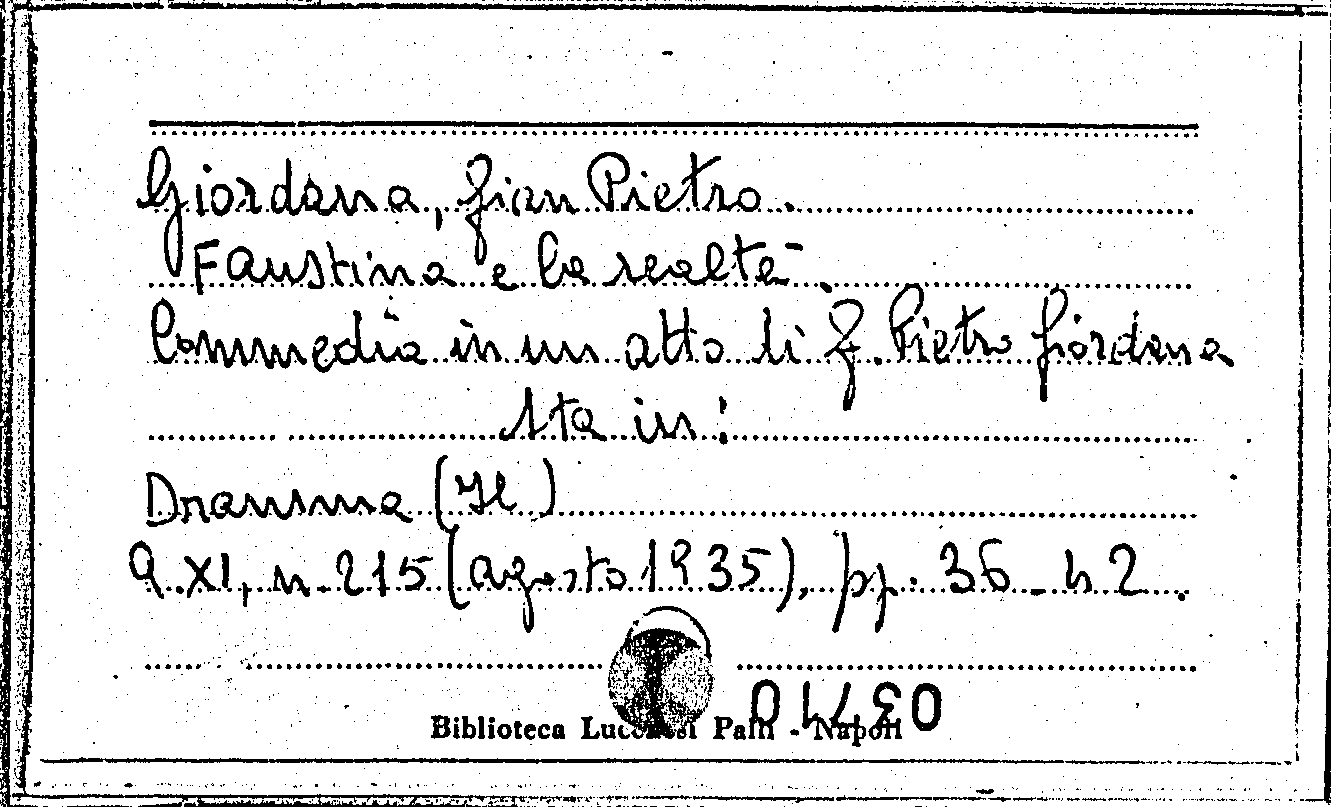 Giordana, Gian Pietro.
Faustina e la realtà.
Commedia in un atto di G. Pietro Giordana
Sta in:
Dramma (Il)
a. XI, n. 215 (agosto 1935), pp. 36-42.
Biblioteca Lucchesi Palli - Napoli